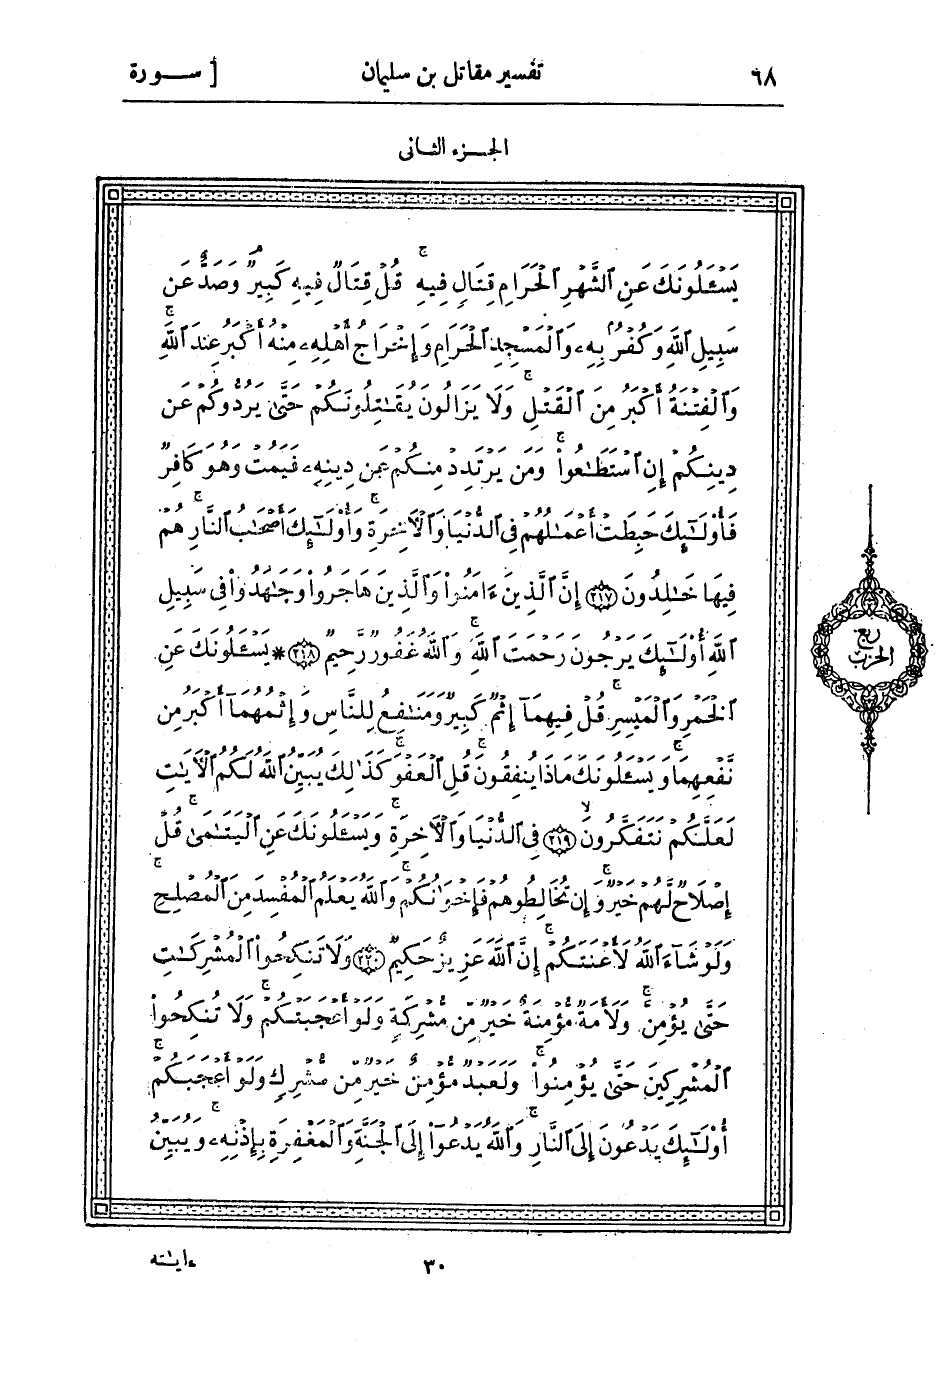 ٦٨ تفسير مقاتل بن سليمان [ سـورة
الجـزء الثانى
يَسْـَٔلُونَكَ عَنِ ٱلشَّهْرِ ٱلْحَرَامِ قِتَالٍ فِيهِ ۖ قُلْ قِتَالٌ فِيهِ كَبِيرٌ ۖ وَصَدٌّ عَن
سَبِيلِ ٱللَّهِ وَكُفْرٌۢ بِهِۦ وَٱلْمَسْجِدِ ٱلْحَرَامِ وَإِخْرَاجُ أَهْلِهِۦ مِنْهُ أَكْبَرُ عِندَ ٱللَّهِ ۚ
وَٱلْفِتْنَةُ أَكْبَرُ مِنَ ٱلْقَتْلِ ۗ وَلَا يَزَالُونَ يُقَـٰتِلُونَكُمْ حَتَّىٰ يَرُدُّوكُمْ عَن
دِينِكُمْ إِنِ ٱسْتَطَـٰعُوا۟ ۚ وَمَن يَرْتَدِدْ مِنكُمْ عَن دِينِهِۦ فَيَمُتْ وَهُوَ كَافِرٌ
فَأُو۟لَـٰٓئِكَ حَبِطَتْ أَعْمَـٰلُهُمْ فِى ٱلدُّنْيَا وَٱلْـَٔاخِرَةِ ۖ وَأُو۟لَـٰٓئِكَ أَصْحَـٰبُ ٱلنَّارِ ۖ هُمْ
فِيهَا خَـٰلِدُونَ ۝٢١٧ إِنَّ ٱلَّذِينَ ءَامَنُوا۟ وَٱلَّذِينَ هَاجَرُوا۟ وَجَـٰهَدُوا۟ فِى سَبِيلِ
ٱللَّهِ أُو۟لَـٰٓئِكَ يَرْجُونَ رَحْمَتَ ٱللَّهِ ۚ وَٱللَّهُ غَفُورٌ رَّحِيمٌ ۝٢١٨ * يَسْـَٔلُونَكَ عَنِ
ٱلْخَمْرِ وَٱلْمَيْسِرِ ۖ قُلْ فِيهِمَآ إِثْمٌ كَبِيرٌ وَمَنَـٰفِعُ لِلنَّاسِ وَإِثْمُهُمَآ أَكْبَرُ مِن
نَّفْعِهِمَا ۗ وَيَسْـَٔلُونَكَ مَاذَا يُنفِقُونَ قُلِ ٱلْعَفْوَ ۗ كَذَٰلِكَ يُبَيِّنُ ٱللَّهُ لَكُمُ ٱلْـَٔايَـٰتِ
لَعَلَّكُمْ تَتَفَكَّرُونَ ۝٢١٩ فِى ٱلدُّنْيَا وَٱلْـَٔاخِرَةِ ۗ وَيَسْـَٔلُونَكَ عَنِ ٱلْيَتَـٰمَىٰ ۖ قُلْ
إِصْلَاحٌ لَّهُمْ خَيْرٌ ۖ وَإِن تُخَالِطُوهُمْ فَإِخْوَٰنُكُمْ ۚ وَٱللَّهُ يَعْلَمُ ٱلْمُفْسِدَ مِنَ ٱلْمُصْلِحِ ۚ
وَلَوْ شَآءَ ٱللَّهُ لَأَعْنَتَكُمْ ۚ إِنَّ ٱللَّهَ عَزِيزٌ حَكِيمٌ ۝٢٢٠ وَلَا تَنكِحُوا۟ ٱلْمُشْرِكَـٰتِ
حَتَّىٰ يُؤْمِنَّ ۚ وَلَأَمَةٌ مُّؤْمِنَةٌ خَيْرٌ مِّن مُّشْرِكَةٍ وَلَوْ أَعْجَبَتْكُمْ ۗ وَلَا تُنكِحُوا۟
ٱلْمُشْرِكِينَ حَتَّىٰ يُؤْمِنُوا۟ ۚ وَلَعَبْدٌ مُّؤْمِنٌ خَيْرٌ مِّن مُّشْرِكٍ وَلَوْ أَعْجَبَكُمْ ۗ
أُو۟لَـٰٓئِكَ يَدْعُونَ إِلَى ٱلنَّارِ ۖ وَٱللَّهُ يَدْعُوٓا۟ إِلَى ٱلْجَنَّةِ وَٱلْمَغْفِرَةِ بِإِذْنِهِۦ ۖ وَيُبَيِّنُ
ربع
الحزب
ءايـٰته
٣٠